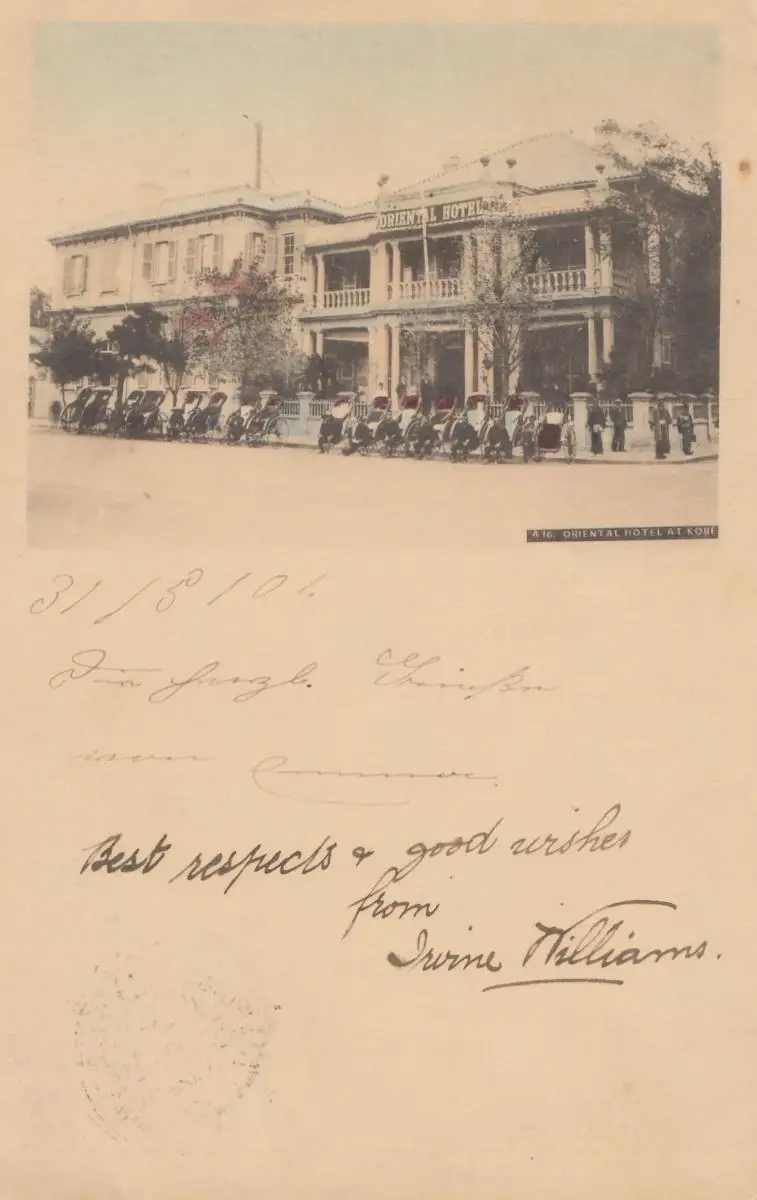 ORIENTAL HOTEL
A 16. ORIENTAL HOTEL AT KOBE
31/5/04
herzl. Grüßen
von
Best respects & good wishes
from
Irvine Williams.